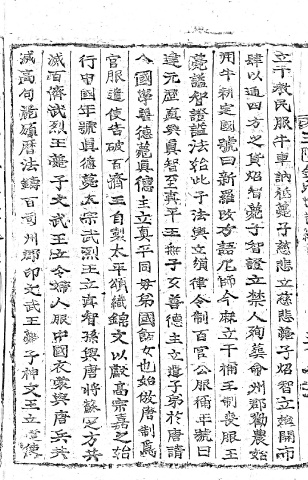 立下敎民服牛車訥祗薨子慈悲立慈悲薨子炤智立始開市
肆以通四方之貨炤智薨子智證立禁人殉葬命州郡勸農始
用牛耕定國號曰新羅改方語尼師今麻立干稱王制喪服王
薨諡智證諡法始此子法興立頒律令制百官公服稱年號曰
建元歷眞興眞智至眞平王無子女善德主立遣子弟於唐請
入國學善德薨眞德主立眞平同母弟國飯女也始倣唐制爲
官服遣使告破百濟主自製太平頌織錦文以獻高宗嘉之始
行中國年號眞德薨太宗武烈王立眞智孫與唐將蘇定方共
滅百濟武烈王薨子文武王立令婦人服中國衣裳與唐兵共
滅高句麗頒曆法鑄百司州郡印文武王薨子神文王立